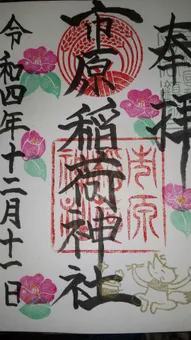 奉拝
市原稲荷神社
令和四年十二月十一日